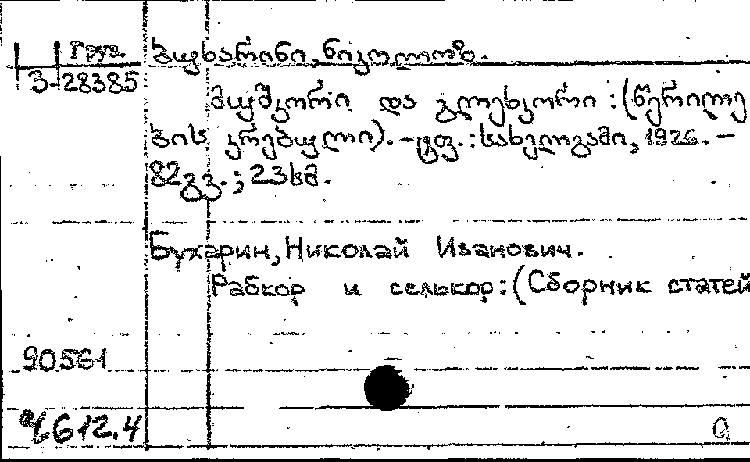 Груз. ბუხარინი, ნიკოლოზ.
3-28385
მუშკორი და გლეხკორი : (წერილე
ბის კრებული). – ტფ. : სახელგამი, 1926. –
82გვ. ; 23სმ.
Бухарин, Николай Иванович.
Рабкор и селькор: (Сборник статей
90561
612.4